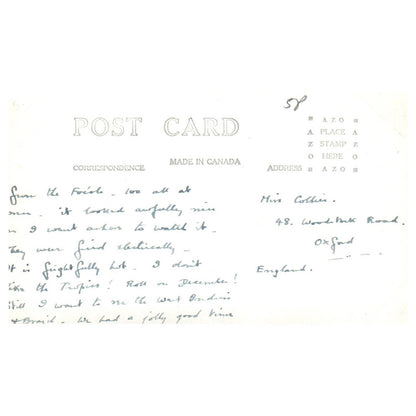 58
POST CARD
CORRESPONDENCE
MADE IN CANADA
ADDRESS
AZO
PLACE
STAMP
HERE
AZO
from the Fo'c's'le - 100 all at
. it looked awfully
I went ashore to watch it.
They were fired electrically -
It is frightfully hot. I don't
like the Tropics! Roll on December!
Still I want to see the West Indies
& Brazil - We had a jolly good time
Miss Collier.
48. Woodstock Road.
Oxford
England.